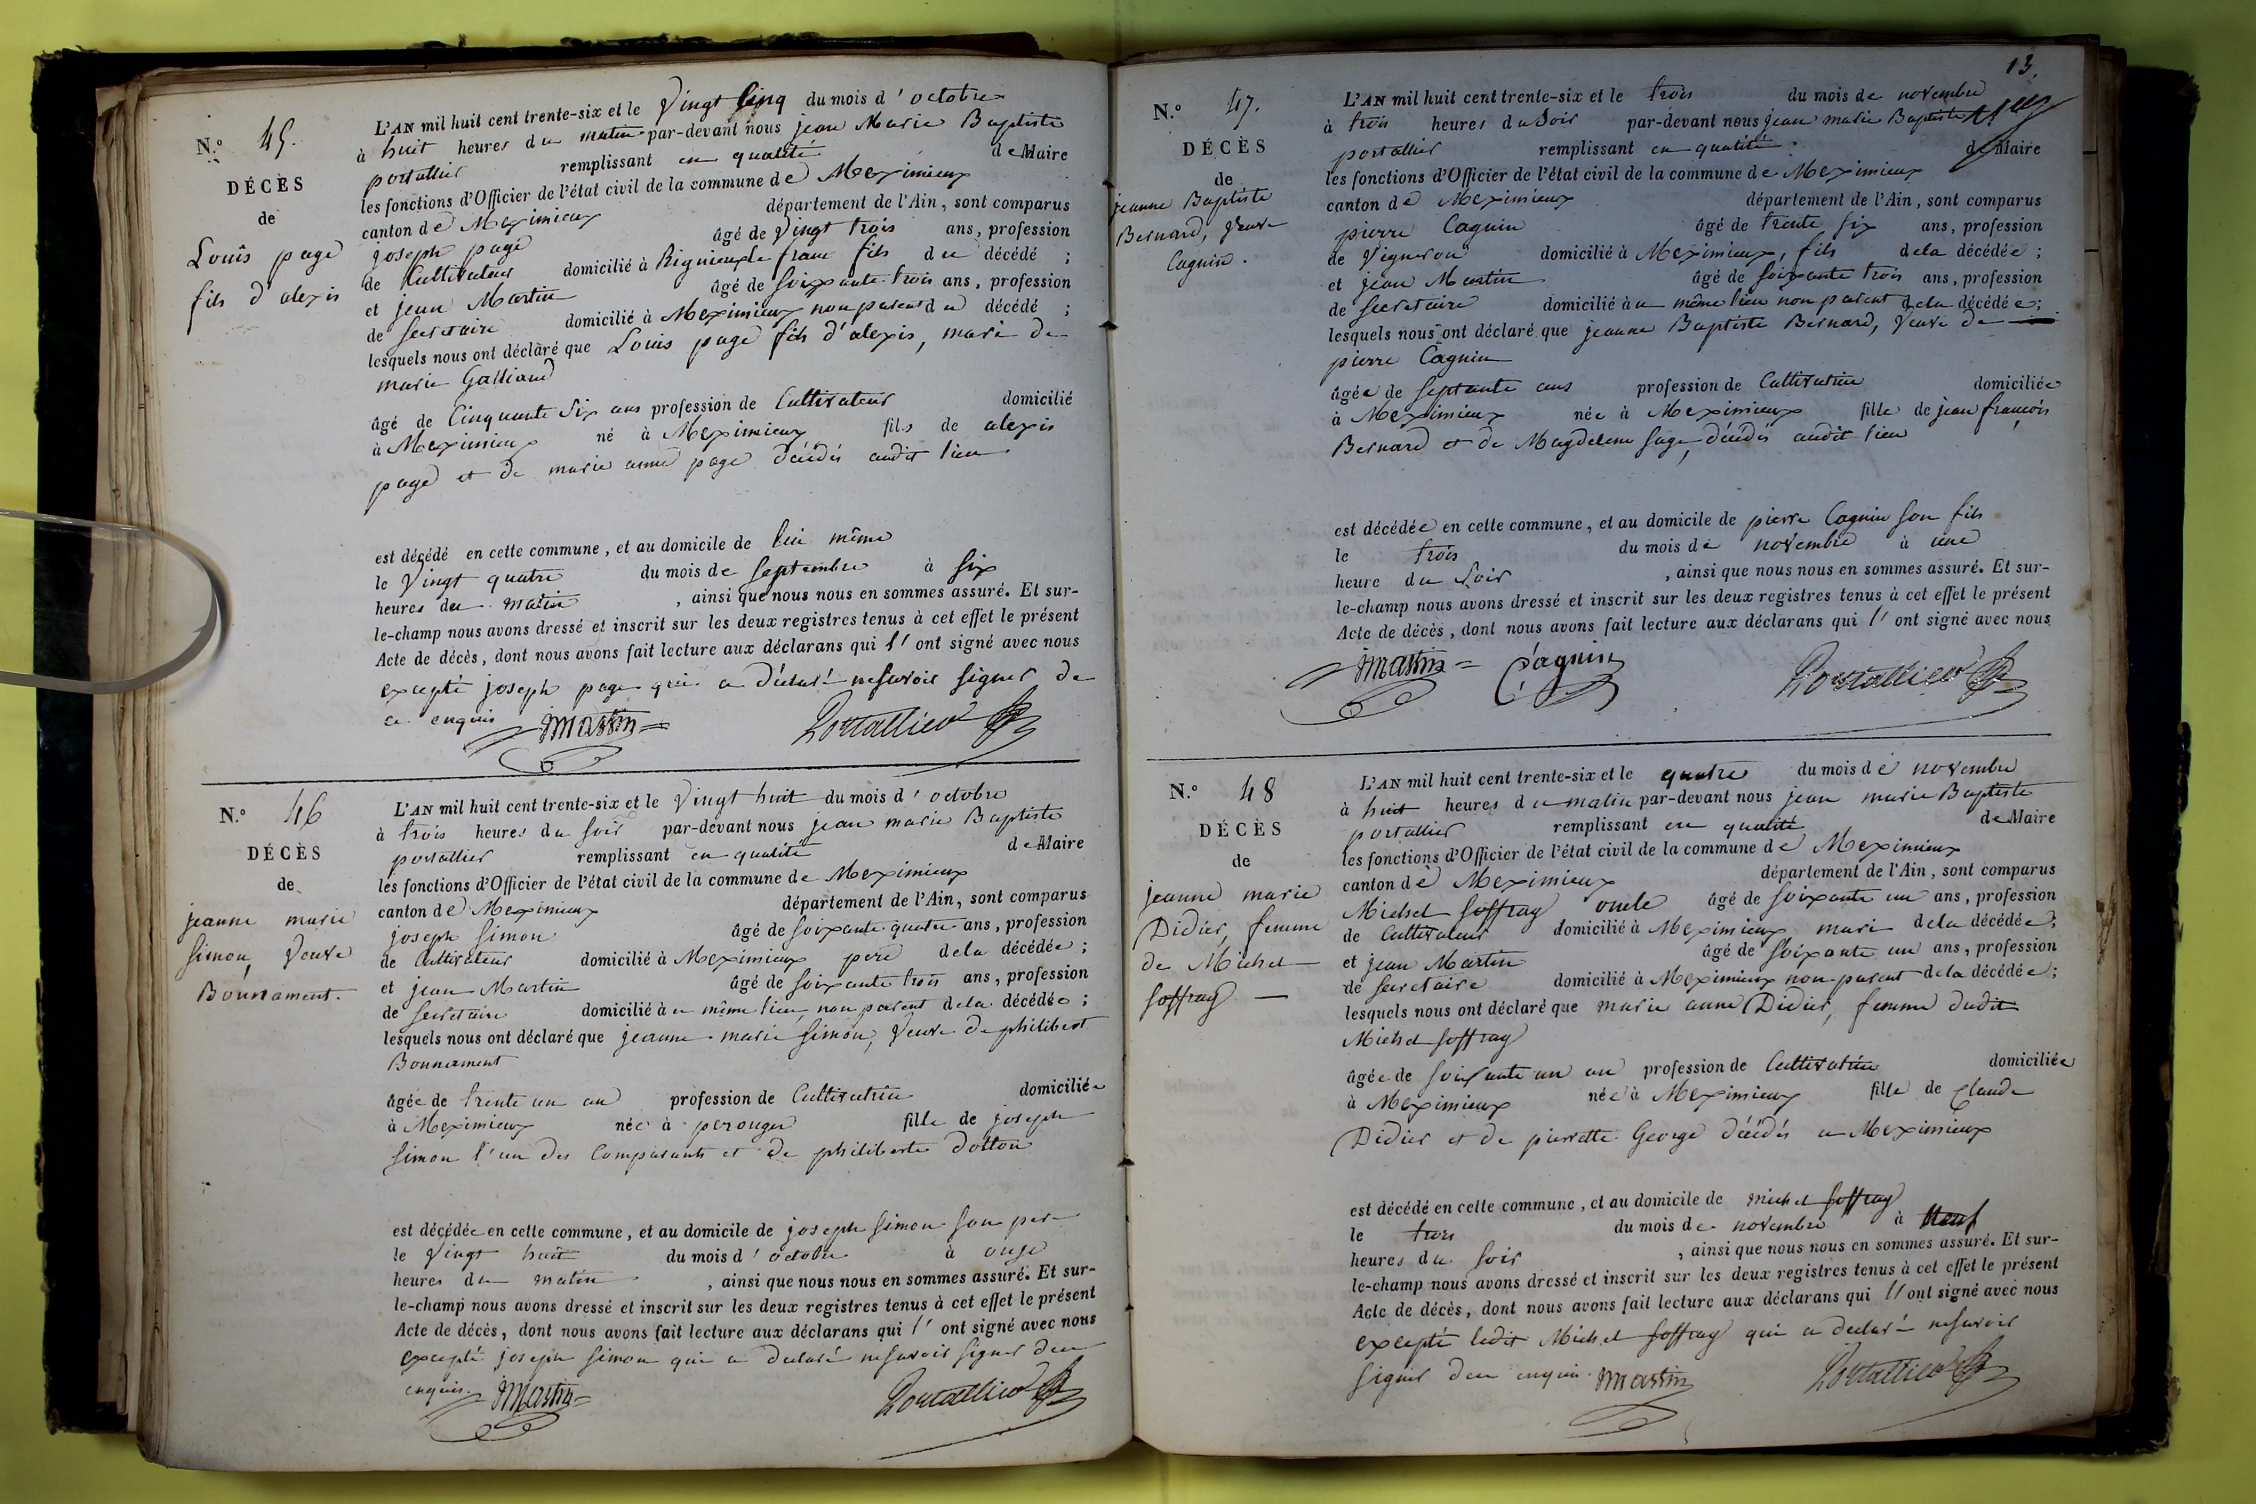 N.° 45.
DÉCÈS
de
Louis page
fils d'alexis
L'AN mil huit cent trente-six et le Vingt cinq du mois d'octobre
à huit heures du matin par-devant nous jean Marie Baptiste
portallier remplissant en qualité de Maire
les fonctions d'Officier de l'état civil de la commune de Meximieux
canton de Meximieux département de l'Ain, sont comparus
joseph page âgé de Vingt trois ans, profession
de Cultivateur domicilié à Rignieux le franc fils du décédé ;
et jean Martin âgé de soixante trois ans, profession
de secretaire domicilié à Meximieux non parent du décédé ;
lesquels nous ont déclaré que Louis page fils d'alexis, mari de
marie Galliand
âgé de Cinquante six ans profession de Cultivateur domicilié
à Meximieux né à Meximieux fils de alexis
page et de marie anne page décédés audit lieu
est décédé en cette commune, et au domicile de lui même
le Vingt quatre du mois de septembre à six
heures du matin , ainsi que nous nous en sommes assuré. Et sur-
le-champ nous avons dressé et inscrit sur les deux registres tenus à cet effet le présent
Acte de décès, dont nous avons fait lecture aux déclarans qui l'ont signé avec nous
excepté joseph page qui a déclaré ne savoir signer de
ce enquis Martin Portallier
N.° 46
DÉCÈS
de
jeanne marie
simon, Veuve
Bonnament.
L'AN mil huit cent trente-six et le Vingt huit du mois d'octobre
à trois heures du soir par-devant nous jean marie Baptiste
portallier remplissant en qualité de Maire
les fonctions d'Officier de l'état civil de la commune de Meximieux
canton de Meximieux département de l'Ain, sont comparus
joseph simon âgé de soixante quatre ans, profession
de Cultivateur domicilié à Meximieux pere de la décédée ;
et jean Martin âgé de soixante trois ans, profession
de secretaire domicilié au même lieu, non parent de la décédée ;
lesquels nous ont déclaré que jeanne marie simon, Veuve de philibert
Bonnament
âgée de trente un an profession de Cultivatrice domiciliée
à Meximieux née à perouges fille de joseph
simon l'un des Comparants et de philiberte Dotton
est décédée en cette commune, et au domicile de joseph simon son pere
le Vingt huit du mois d'octobre à onze
heures du matin , ainsi que nous nous en sommes assuré. Et sur-
le-champ nous avons dressé et inscrit sur les deux registres tenus à cet effet le présent
Acte de décès, dont nous avons fait lecture aux déclarans qui l'ont signé avec nous
excepté joseph simon qui a declaré ne savoir signer d'eu
enquis. Martin Portallier
13.
N.° 47.
DÉCÈS
de
jeanne Baptiste
Bernard, Veuve
Cagnin.
L'AN mil huit cent trente-six et le trois du mois de novembre
à trois heures du soir par-devant nous jean marie Baptiste
portallier remplissant en qualité de Maire
les fonctions d'Officier de l'état civil de la commune de Meximieux
canton de Meximieux département de l'Ain, sont comparus
pierre Cagnin âgé de trente six ans, profession
de Vigneron domicilié à Meximieux, fils de la décédée ;
et jean Martin âgé de soixante trois ans, profession
de secretaire domicilié au même lieu non parent de la décédée ;
lesquels nous ont déclaré que jeanne Baptiste Bernard, Veuve de
pierre Cagnin
âgée de septante ans profession de Cultivatrice domiciliée
à Meximieux née à Meximieux fille de jean françois
Bernard et de Magdelene sage, décédés audit lieu
est décédée en cette commune, et au domicile de pierre Cagnin son fils
le trois du mois de novembre à une
heure du soir , ainsi que nous nous en sommes assuré. Et sur-
le-champ nous avons dressé et inscrit sur les deux registres tenus à cet effet le présent
Acte de décès, dont nous avons fait lecture aux déclarans qui l'ont signé avec nous
Martin Cagnin Portallier
N.° 48
DÉCÈS
de
jeanne marie
Didier, femme
de Michel
soffray
L'AN mil huit cent trente-six et le quatre du mois de novembre
à huit heures du matin par-devant nous jean marie Baptiste
portallier remplissant en qualité de Maire
les fonctions d'Officier de l'état civil de la commune de Meximieux
canton de Meximieux département de l'Ain, sont comparus
Michel soffray oncle âgé de soixante un ans, profession
de Cultivateur domicilié à Meximieux mari de la décédée ;
et jean Martin âgé de soixante un ans, profession
de secretaire domicilié à Meximieux non parent de la décédée ;
lesquels nous ont déclaré que marie anne Didier, femme dudit
Michel soffray
âgée de soixante un an profession de Cultivatrice domiciliée
à Meximieux née à Meximieux fille de Claude
Didier et de pierrette George décédés a Meximieux
est décédé en cette commune, et au domicile de michel soffray
le trois du mois de novembre à Neuf
heures du soir , ainsi que nous nous en sommes assuré. Et sur-
le-champ nous avons dressé et inscrit sur les deux registres tenus à cet effet le présent
Acte de décès, dont nous avons fait lecture aux déclarans qui l'ont signé avec nous
excepté ledit Michel soffray qui a declaré ne savoir
signer d'eu enquis. Martin Portallier